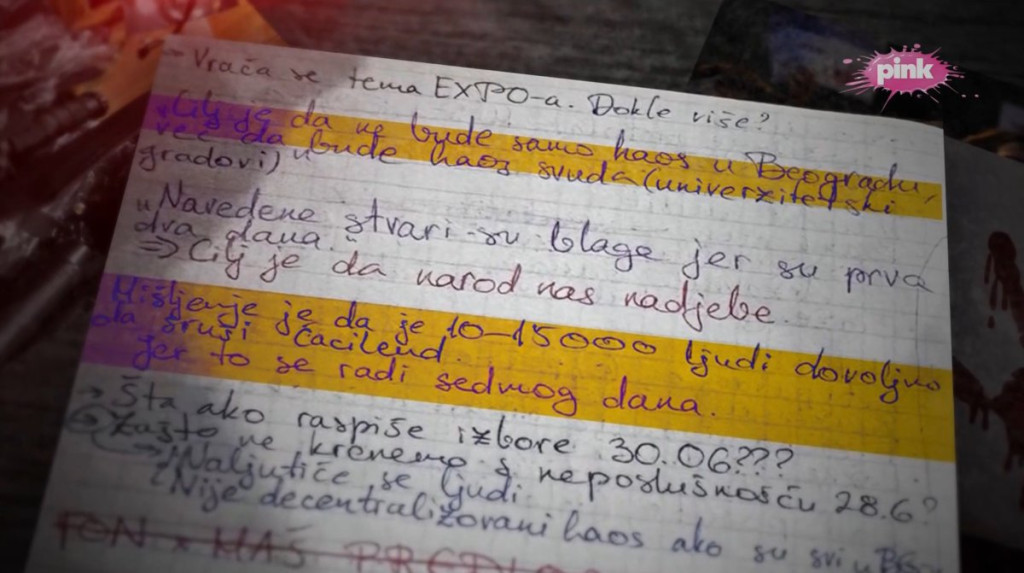 pink
- Vraća se tema EXPO-a. Dokle više?
"Cilj je da ne bude samo haos u Beogradu,
već da bude haos svuda (univerzitetski
gradovi)"
"Navedene stvari su blage jer su prva
dva dana."
⇒ Cilj je da narod nas nadjebe.
Mišljenje je da je 10-15000 ljudi dovoljno
da sruši Ćacilend.
Jer to se radi sedmog dana.
→ Šta ako raspiše izbore 30.06???
→ Zašto ne krenemo s neposlušnošću 28.6?
→ Naljutiće se ljudi.
Nije decentralizovani haos ako su svi u BG-
FON × MAŠ